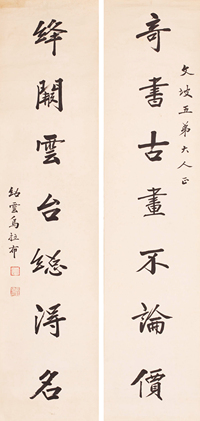 文坡五弟大人正
奇書古畫不論價
絳闕雲台總得名
紹雲烏拉布